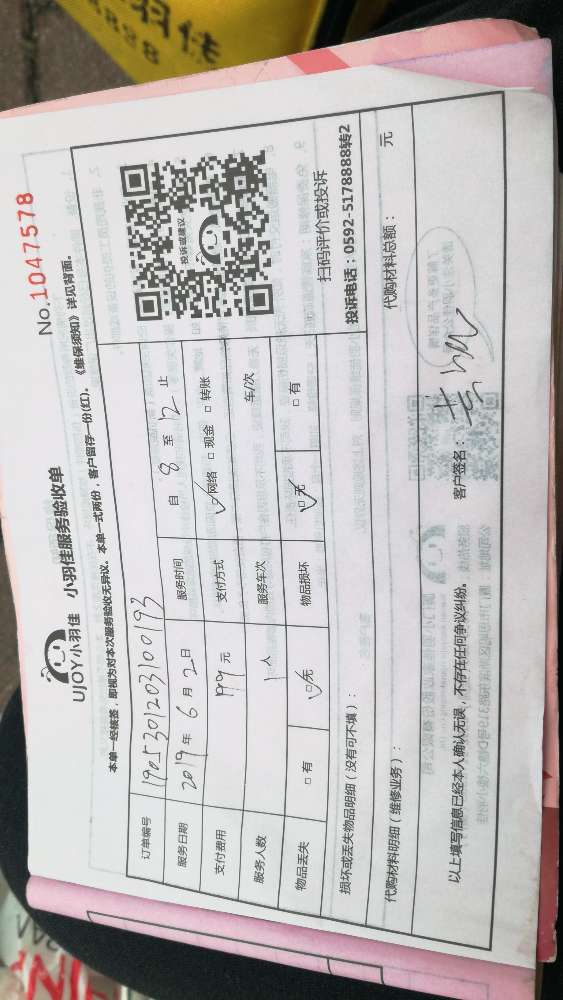 No.1047578
UJOY小羽佳 小羽佳服务验收单
本单一经核签，即视为对本次服务验收无异议。本单一式两份，客户留存一份(红)。《维保须知》详见背面。
订单编号 1905301203100193
服务日期 2019年6月2日 服务时间 自8至12止
支付费用 199元 支付方式 ☑网络 □现金 □转账
服务人数 1人 服务车次 车/次
物品丢失 □有 ☑无 物品损坏 ☑无 □有
投诉或建议
扫码评价或投诉
投诉电话：0592-5178888转2
损坏或丢失物品明细（没有可不填）：
代购材料明细（维修业务）：
代购材料总额： 元
以上填写信息已经本人确认无误，不存在任何争议纠纷。 客户签名：
小羽佳
8888